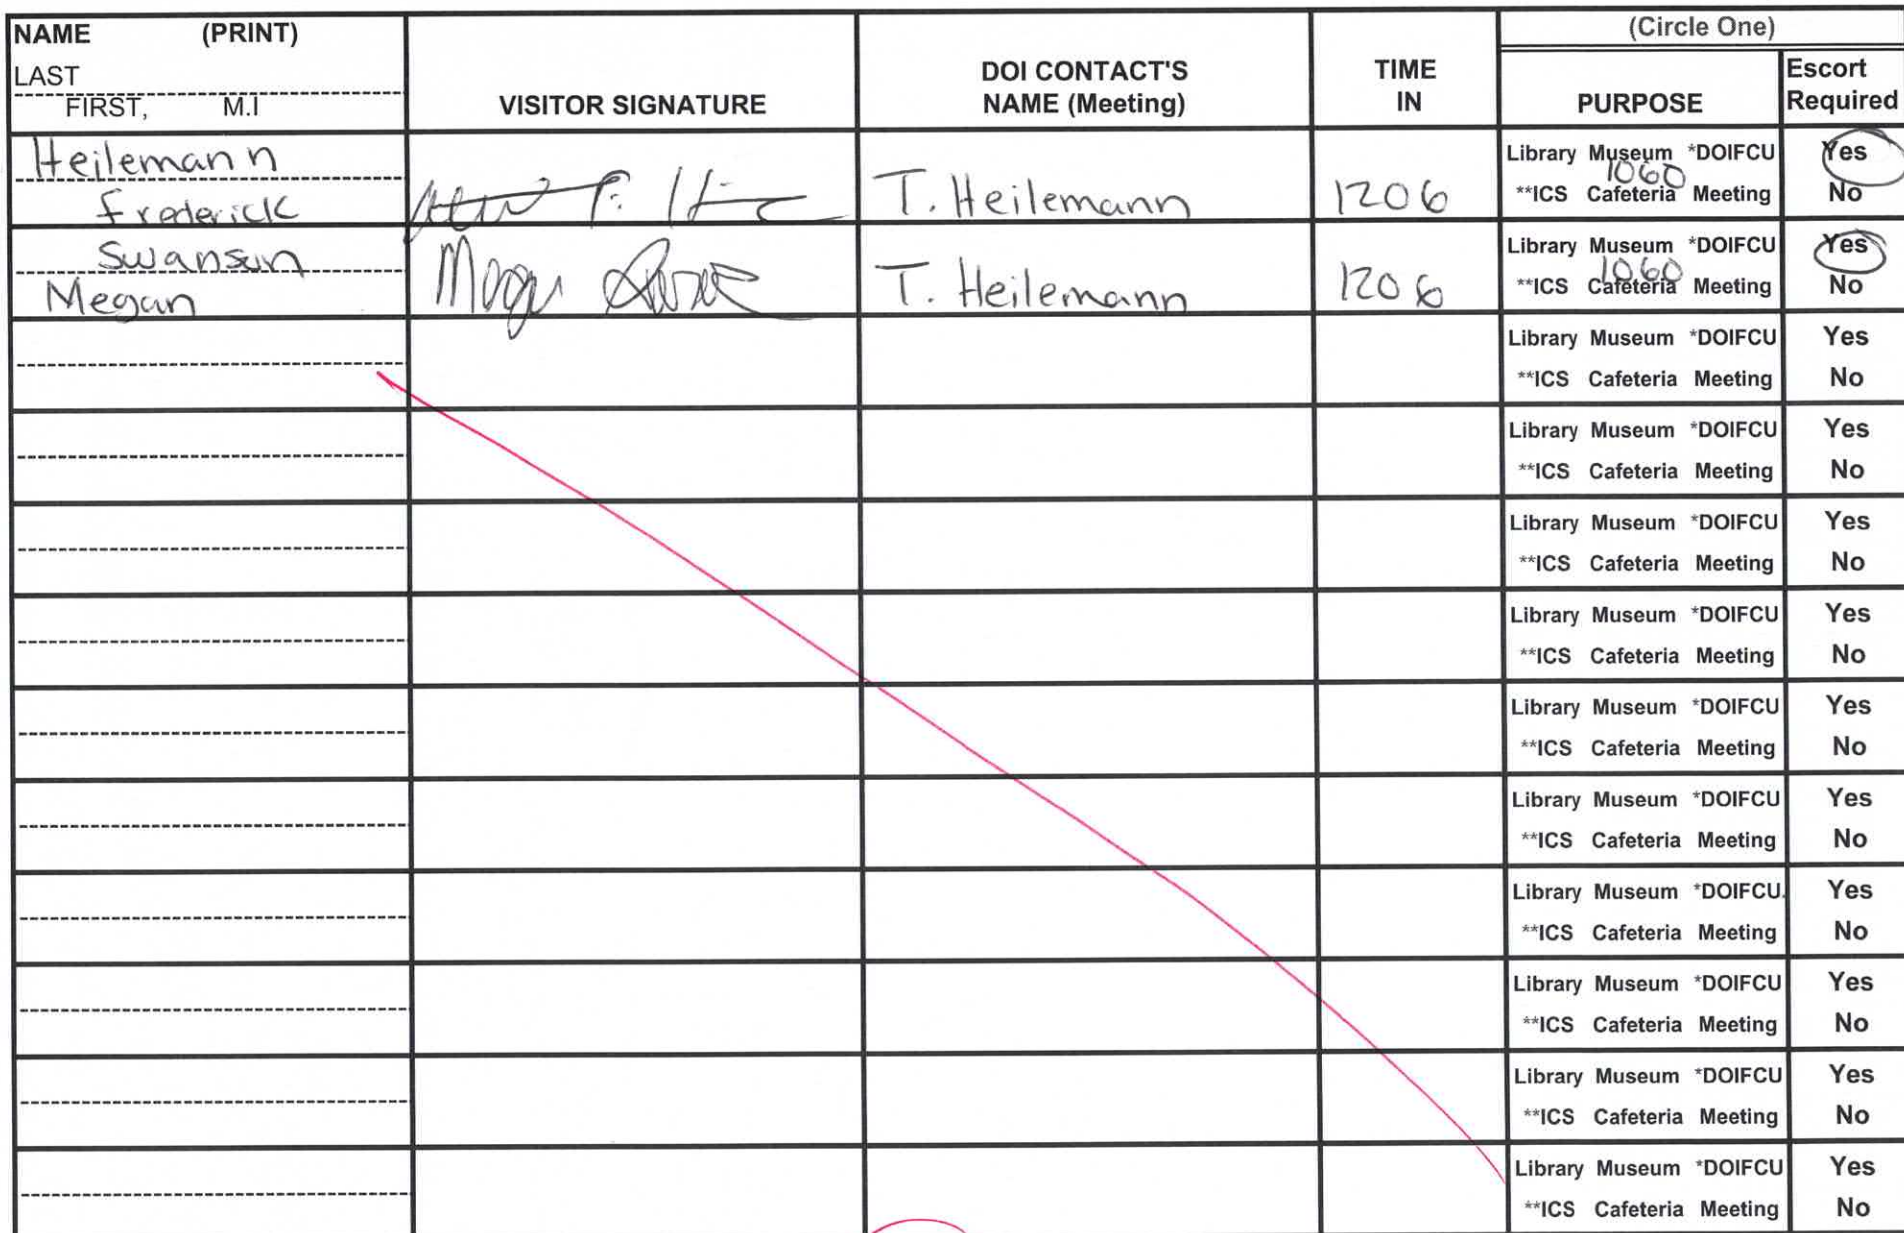 NAME (PRINT)
LAST
FIRST, M.I
VISITOR SIGNATURE
DOI CONTACT'S
NAME (Meeting)
TIME
IN
(Circle One)
PURPOSE
Escort
Required
Heilemann
Frederick
T. Heilemann
1206
Library Museum *DOIFCU
1060
**ICS Cafeteria Meeting
Yes
No
Swanson
Megan
T. Heilemann
1206
Library Museum *DOIFCU
1060
**ICS Cafeteria Meeting
Yes
No
Library Museum *DOIFCU Yes
**ICS Cafeteria Meeting No
Library Museum *DOIFCU Yes
**ICS Cafeteria Meeting No
Library Museum *DOIFCU Yes
**ICS Cafeteria Meeting No
Library Museum *DOIFCU Yes
**ICS Cafeteria Meeting No
Library Museum *DOIFCU Yes
**ICS Cafeteria Meeting No
Library Museum *DOIFCU Yes
**ICS Cafeteria Meeting No
Library Museum *DOIFCU. Yes
**ICS Cafeteria Meeting No
Library Museum *DOIFCU Yes
**ICS Cafeteria Meeting No
Library Museum *DOIFCU Yes
**ICS Cafeteria Meeting No
Library Museum *DOIFCU Yes
**ICS Cafeteria Meeting No